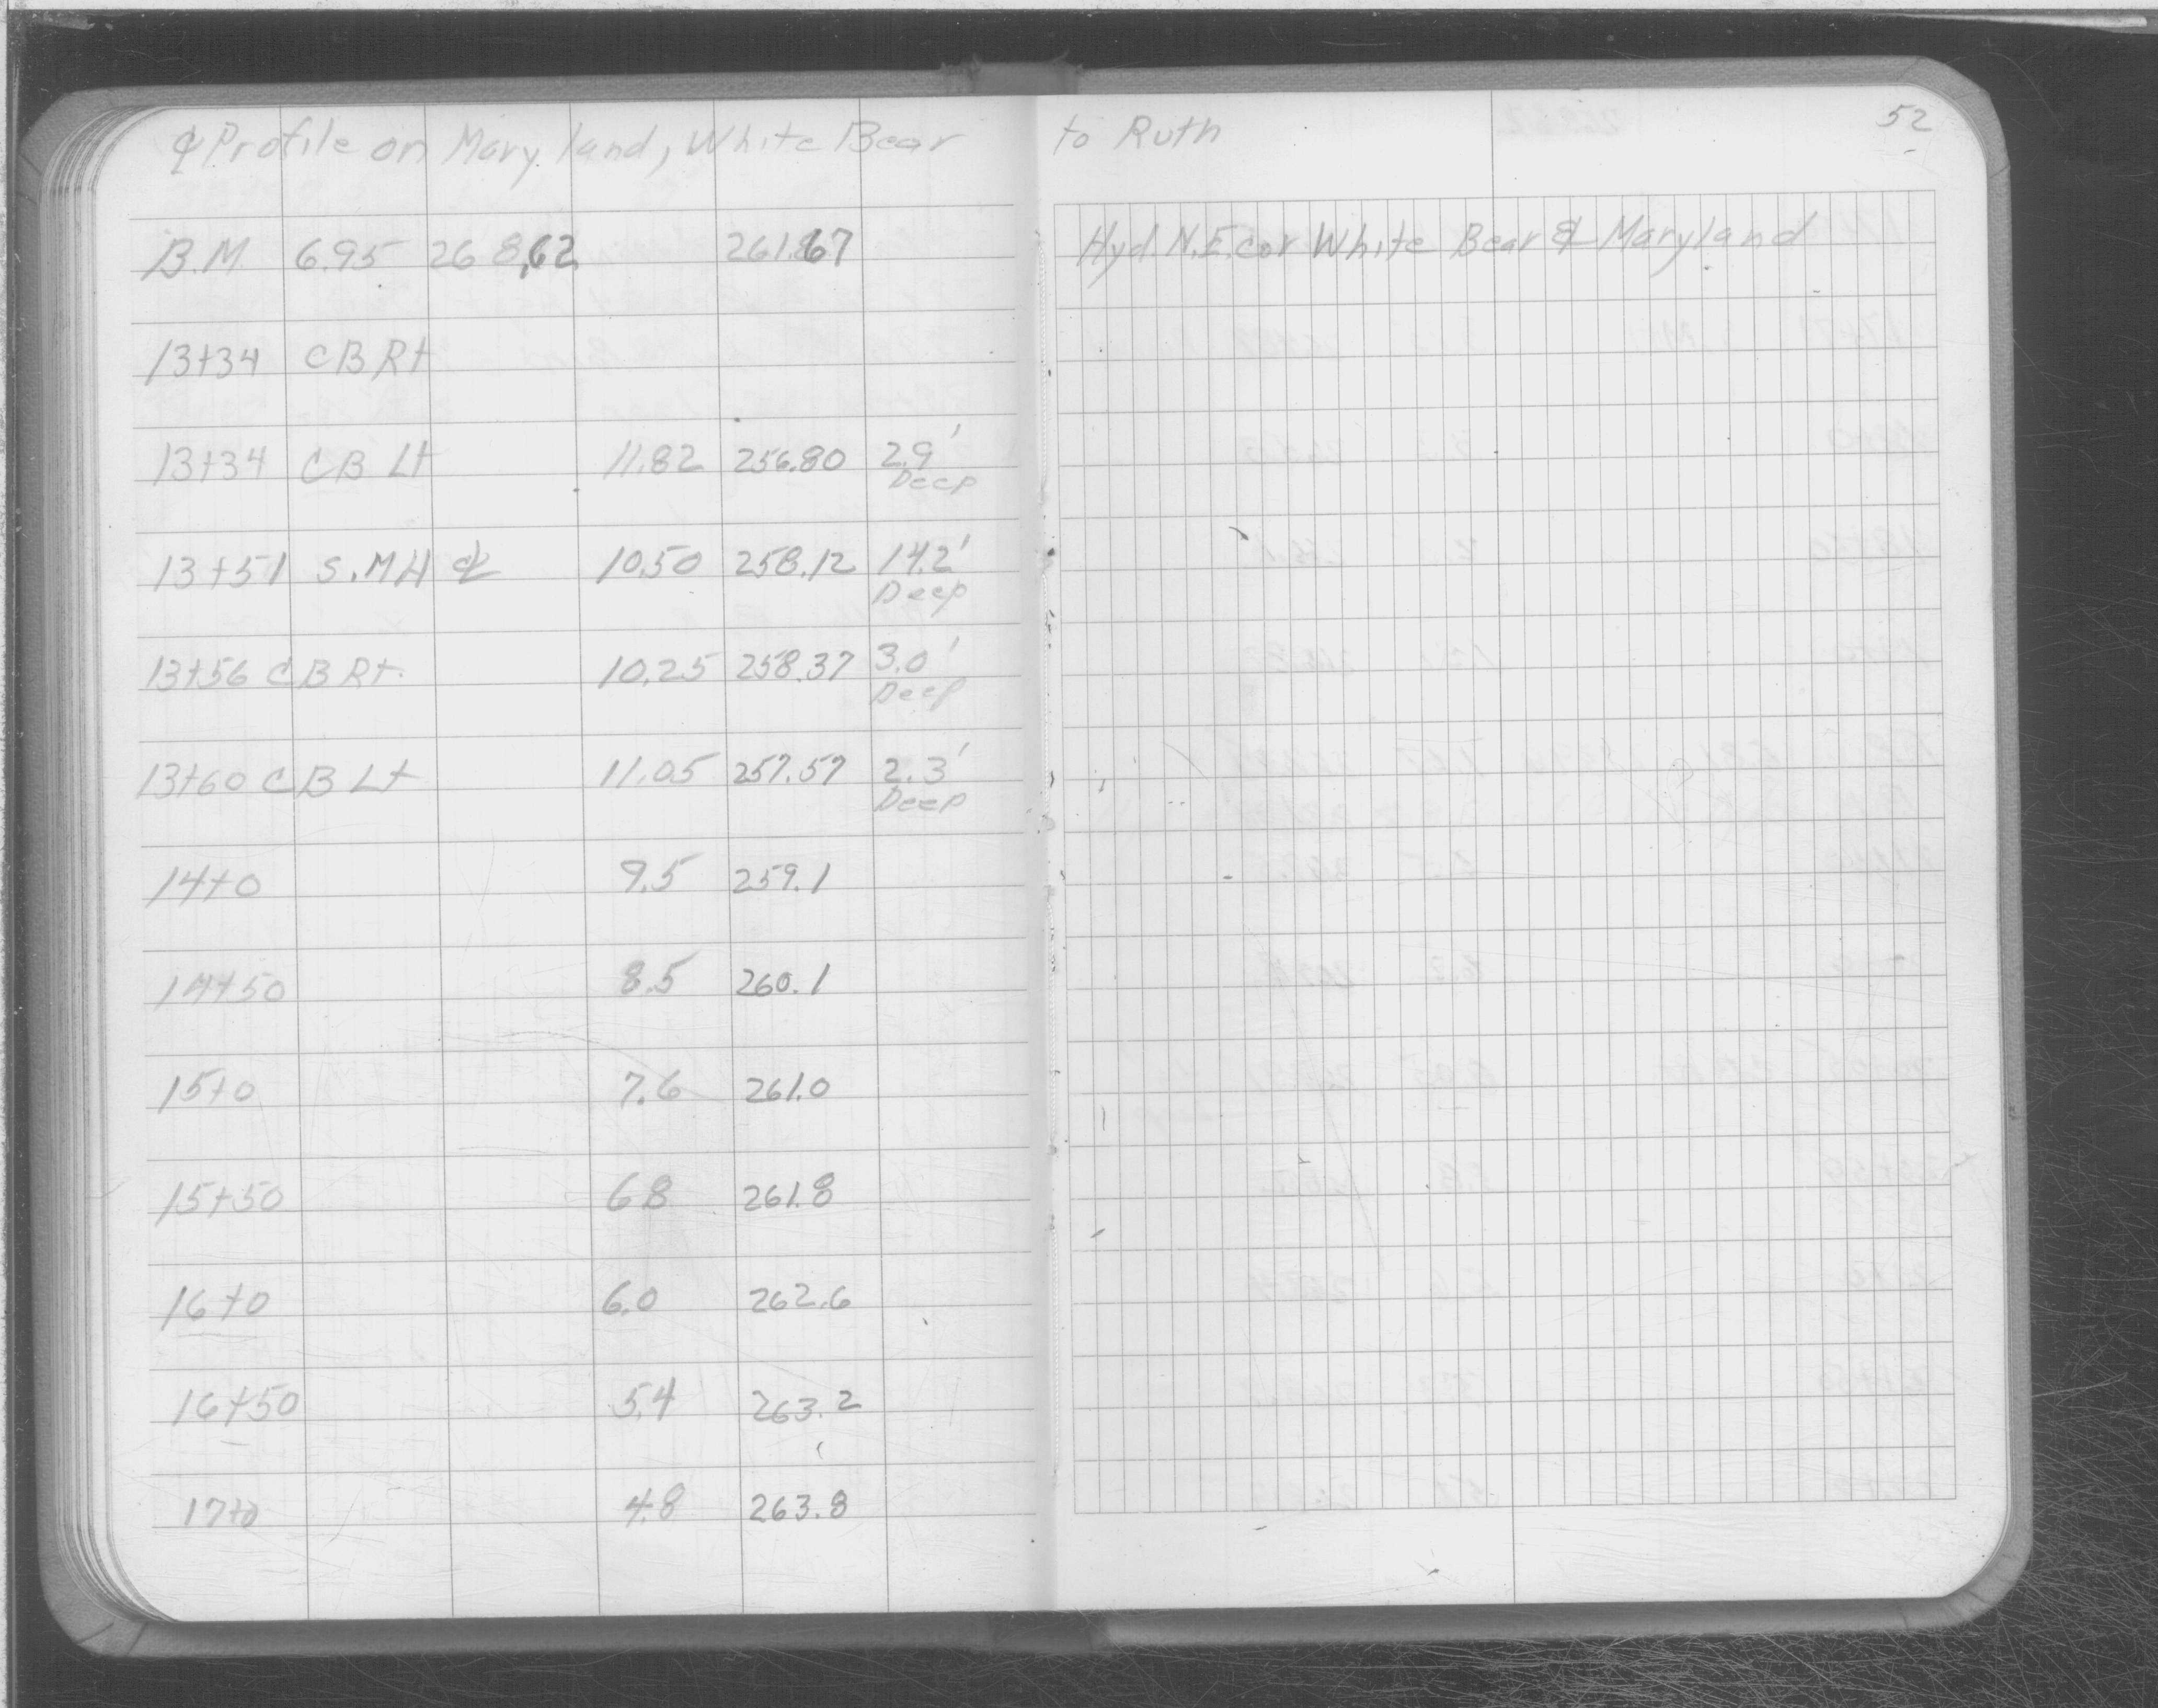 ℄ Profile on Maryland, White Bear to Ruth
52
B.M. 6.95 268.62 261.67 Hyd. N.E. cor White Bear & Maryland
13+34 CB Rt
13+34 CB Lt 11.82 256.80 2.9'
Deep
13+51 S.MH ℄ 10.50 258.12 14.2'
Deep
13+56 CB Rt. 10.25 258.37 3.0'
Deep
13+60 CB Lt 11.05 257.57 2.3'
Deep
14+0 9.5 259.1
14+50 8.5 260.1
15+0 7.6 261.0
15+50 6.8 261.8
16+0 6.0 262.6
16+50 5.4 263.2
17+0 4.8 263.8